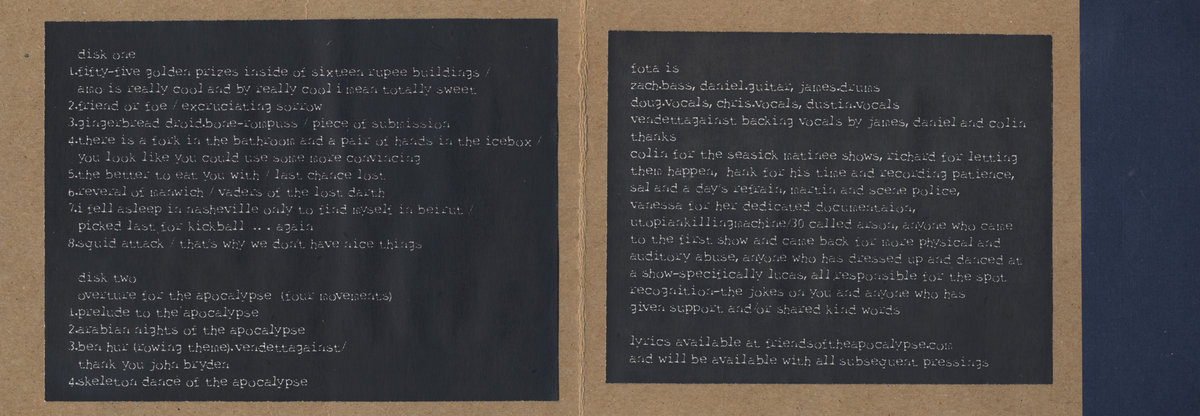 disk one
1.fifty-five golden prizes inside of sixteen rupee buildings /
amo is really cool and by really cool i mean totally sweet
2.friend or foe / excruciating sorrow
3.gingerbread droid.bone-rompuss / piece of submission
4.there is a fork in the bathroom and a pair of hands in the icebox /
you look like you could use some more convincing
5.the better to eat you with / last chance lost
6.reveral of manwich / vaders of the lost darth
7.i fell asleep in nasheville only to find myself in beirut /
picked last for kickball ... again
8.squid attack / that's why we don't have nice things
disk two
overture for the apocalypse (four movements)
1.prelude to the apocalypse
2.arabian nights of the apocalypse
3.ben hur (rowing theme).vendettagainst/
thank you john bryden
4.skeleton dance of the apocalypse
fota is
zach.bass, daniel.guitar, james.drums
doug.vocals, chris.vocals, dustin.vocals
vendettagainst backing vocals by james, daniel and colin
thanks
colin for the seasick matinee shows, richard for letting
them happen, hank for his time and recording patience,
sal and a day's refrain, martin and scene police,
vanessa for her dedicated documentaion,
utopiankillingmachine/30 called arson, anyone who came
to the first show and came back for more physical and
auditory abuse, anyone who has dressed up and danced at
a show-specifically lucas, all responsible for the spot
recognition-the jokes on you and anyone who has
given support and/or shared kind words
lyrics available at friendsoftheapocalypse.com
and will be available with all subsequent pressings